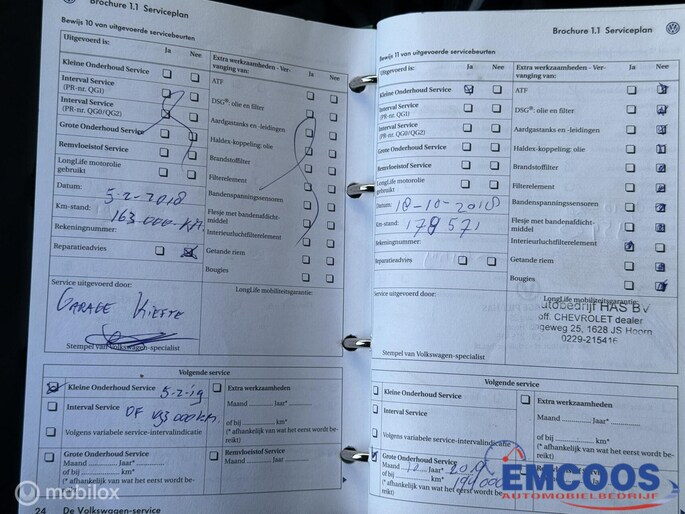 Brochure 1.1 Serviceplan
Bewijs 10 van uitgevoerde servicebeurten
Uitgevoerd is:
Ja
Nee
Kleine Onderhoud Service
Interval Service
(PR-nr. QG1)
Interval Service
(PR-nr. QG0/QG2)
Grote Onderhoud Service
Remvloeistof Service
LongLife motorolie
gebruikt
Datum:
5-2-2018
Km-stand:
163.000-KM
Rekeningnummer:
Reparatieadvies
Extra werkzaamheden - Ver-
vanging van:
Ja
Nee
ATF
DSG®: olie en filter
Aardgastanks en -leidingen
Haldex-koppeling: olie
Brandstoffilter
Filterelement
Bandenspanningssensoren
Flesje met bandenafdicht-
middel
Interieurluchtfilterelement
Getande riem
Bougies
Service uitgevoerd door:
LongLife mobiliteitsgarantie:
GARAGE KIEFTE
Stempel van Volkswagen-specialist
Volgende service
Kleine Onderhoud Service
5-2-19
Interval Service
OF 193000 KM.
Volgens variabele service-intervalindicatie
Extra werkzaamheden
Maand .......... Jaar*..........
of bij .......... km*
(* afhankelijk van wat het eerst wordt be-
reikt)
Grote Onderhoud Service
Maand .......... Jaar*..........
of bij .......... km*
(* afhankelijk van wat het eerst wordt be-
reikt)
Remvloeistof Service
Maand .......... Jaar*..........
24
De Volkswagen-service
Brochure 1.1 Serviceplan
Bewijs 11 van uitgevoerde servicebeurten
Uitgevoerd is:
Ja
Nee
Kleine Onderhoud Service
Interval Service
(PR-nr. QG1)
Interval Service
(PR-nr. QG0/QG2)
Grote Onderhoud Service
Remvloeistof Service
LongLife motorolie
gebruikt
Datum:
18-10-2018
Km-stand:
178571
Rekeningnummer:
Reparatieadvies
Extra werkzaamheden - Ver-
vanging van:
Ja
Nee
ATF
DSG®: olie en filter
Aardgastanks en -leidingen
Haldex-koppeling: olie
Brandstoffilter
Filterelement
Bandenspanningssensoren
Flesje met bandenafdicht-
middel
Interieurluchtfilterelement
Getande riem
Bougies
Service uitgevoerd door:
LongLife mobiliteitsgarantie:
utobedrijf HAS BV
off. CHEVROLET dealer
ageweg 25, 1628 JS Hoorn
0229-215416
Stempel van Volkswagen-specialist
Volgende service
Kleine Onderhoud Service
Interval Service
Volgens variabele service-intervalindicatie
Extra werkzaamheden
Maand .......... Jaar*..........
of bij .......... km*
(* afhankelijk van wat het eerst wordt be-
reikt)
Grote Onderhoud Service
Maand 10 Jaar* 2019
of bij 194000
(* afhankelijk van wat het eerst wordt be-
reikt)
EMCOOS
AUTOMOBIELBEDRIJF
mobilox